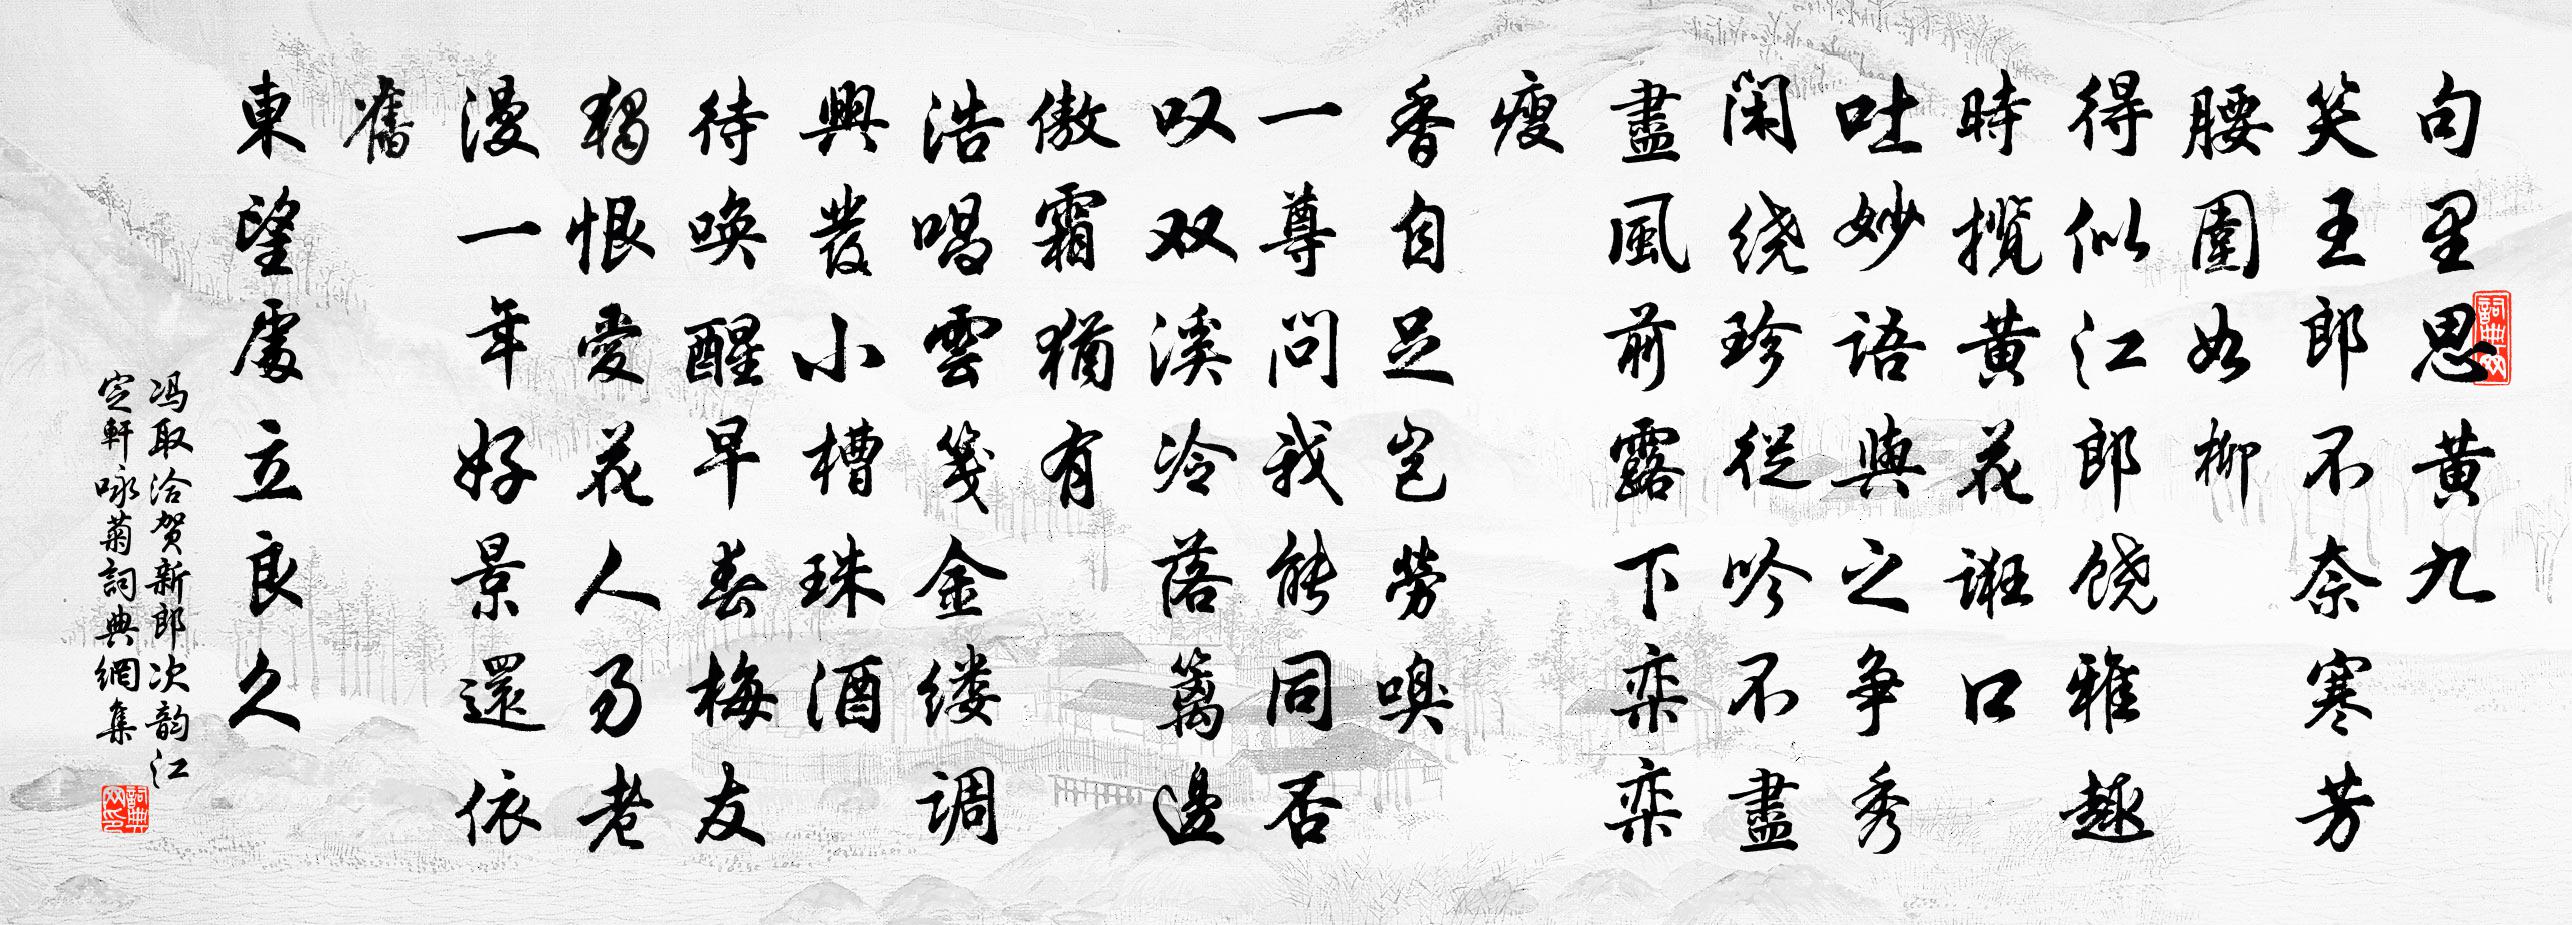 句里思黄九
笑王郎不奈寒芳
腰圍如柳
得似江郎饶雅趣
時揽黄花誑口
吐妙語與之争秀
閑绕珍從吟不盡
盡風前露下栾栾
瘦
香自足岂勞嗅
一尊問我能同否
叹双溪冷落篱邊
傲霜猶有
浩唱雲笺金缕调
興發小槽珠酒
待唤醒早春梅友
獨恨愛花人易老
漫一年好景還依
舊
東望處立良久
冯取洽贺新郎次韵江
定軒咏菊詞典網集
詞典网
詞典网印